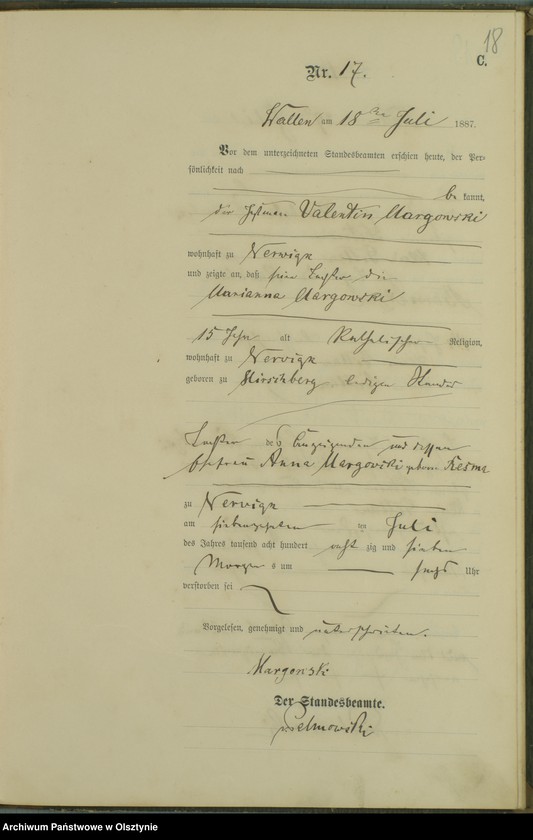 18
C.
Nr. 17.
Wallen am 18ten Juli 1887.
Vor dem unterzeichneten Standesbeamten erschien heute, der Per-
sönlichkeit nach
be kannt,
der Valentin Margowski
wohnhaft zu Nerwigk
und zeigte an, daß seine Tochter die
Marianna Margowski
15 Jahr alt Katholischer Religion,
wohnhaft zu Nerwigk
geboren zu Hirschberg ledigen Standes
Tochter des Anzeigenden und dessen
Ehefrau Anna Margowski geboren
zu Nerwigk
am siebenzehnten ten Juli
des Jahres tausend acht hundert acht zig und sieben
Morgen s um sechs Uhr
verstorben sei
Vorgelesen, genehmigt und unterschrieben.
Margowski
Der Standesbeamte.
Archiwum Państwowe w Olsztynie